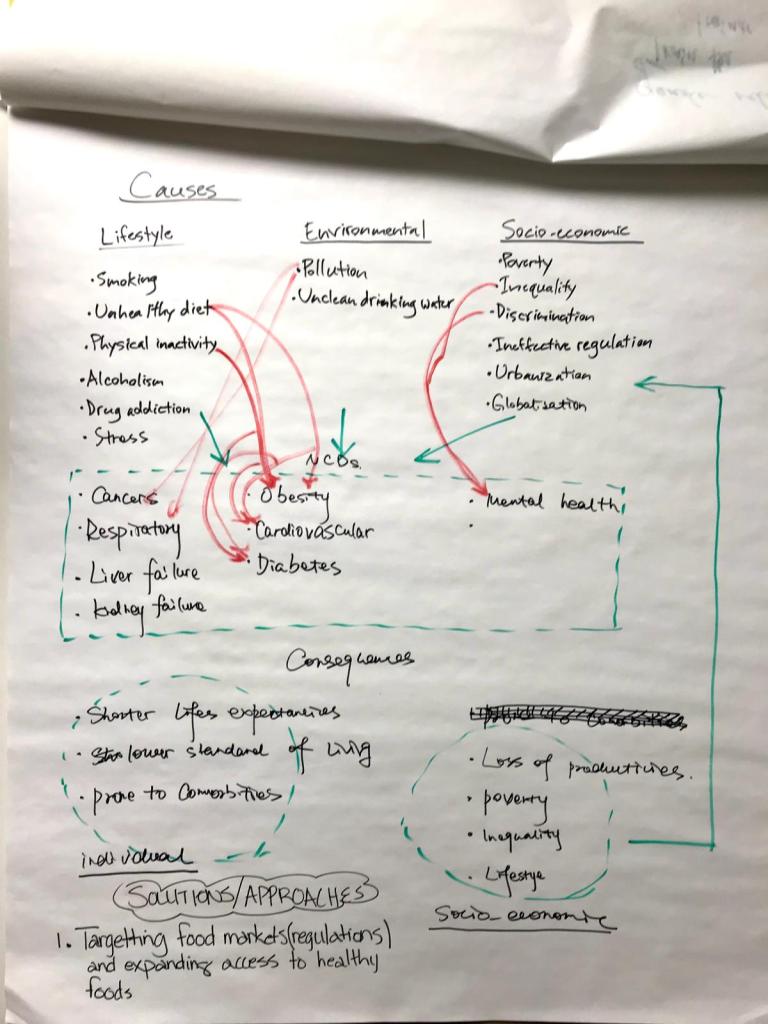 Causes
Lifestyle
· Smoking
· Unhealthy diet
· Physical inactivity
· Alcoholism
· Drug addiction
· Stress
Environmental
· Pollution
· Unclean drinking water
Socio-economic
· Poverty
· Inequality
· Discrimination
· Ineffective regulation
· Urbanization
· Globalisation
NCDs.
· Cancers
· Respiratory
· Liver failure
· kidney failure
· Obesity
· Cardiovascular
· Diabetes
· Mental health
·
Consequences
· Shorter lifes expectancies
· lower standard of living
· prone to Comorbities
individual
· Loss of producticies.
· poverty
· Inequality
· Lifestye
Socio-economic
SOLUTIONS/APPROACHES
1. Targetting food markets(regulations)
and expanding access to healthy
foods